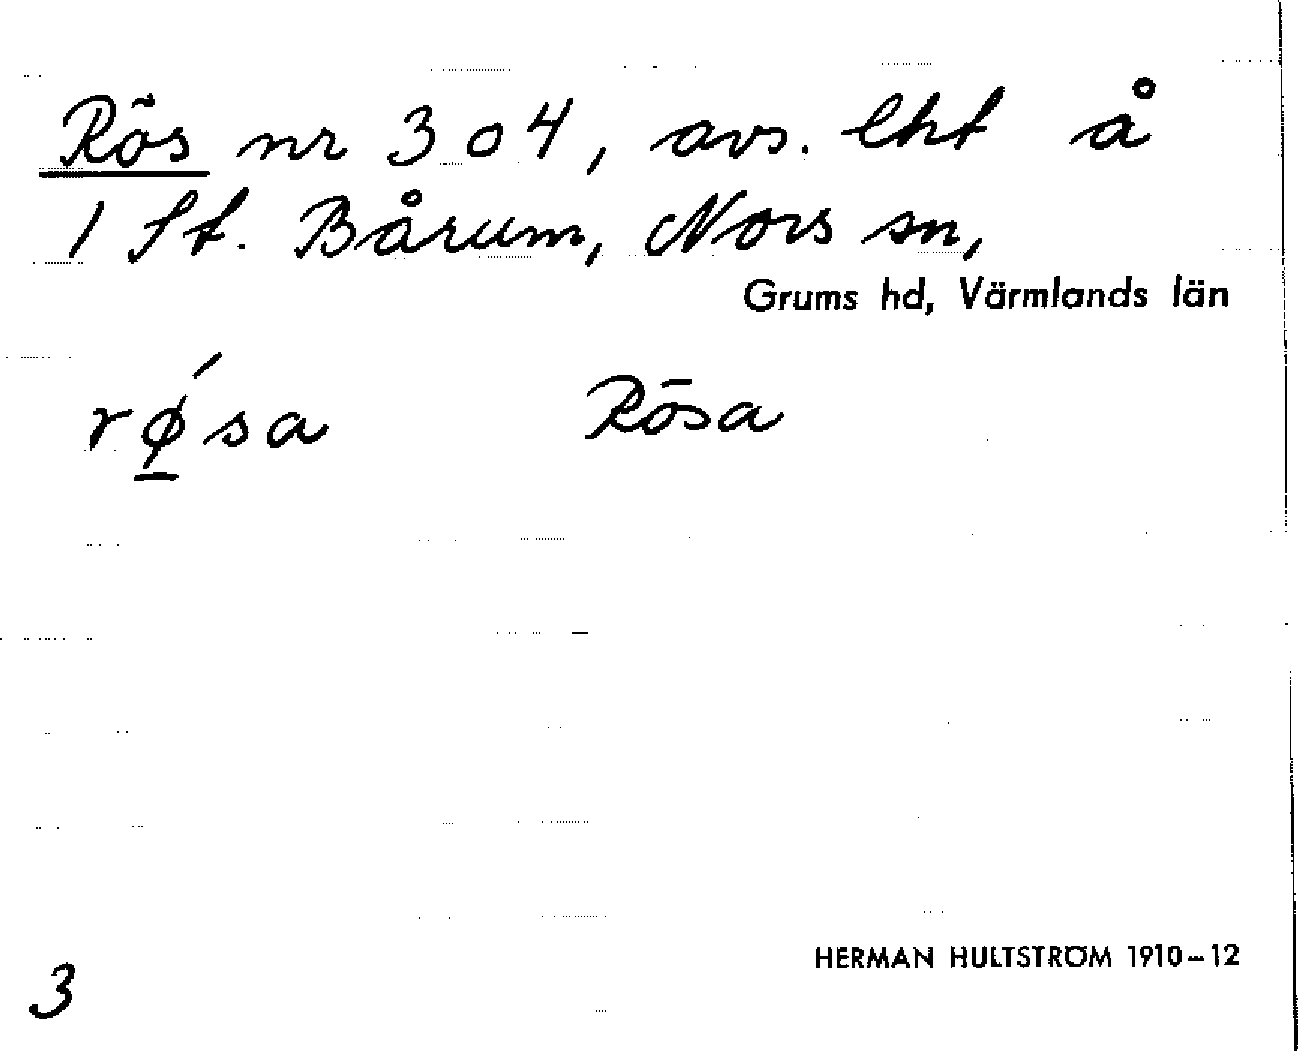 Rös nr 3 o 4, avs. lht å
1 St. Bårum, Nors sn,
Grums hd, Värmlands län
rǿ̱sa Rösa
3
HERMAN HULTSTRÖM 1910-12